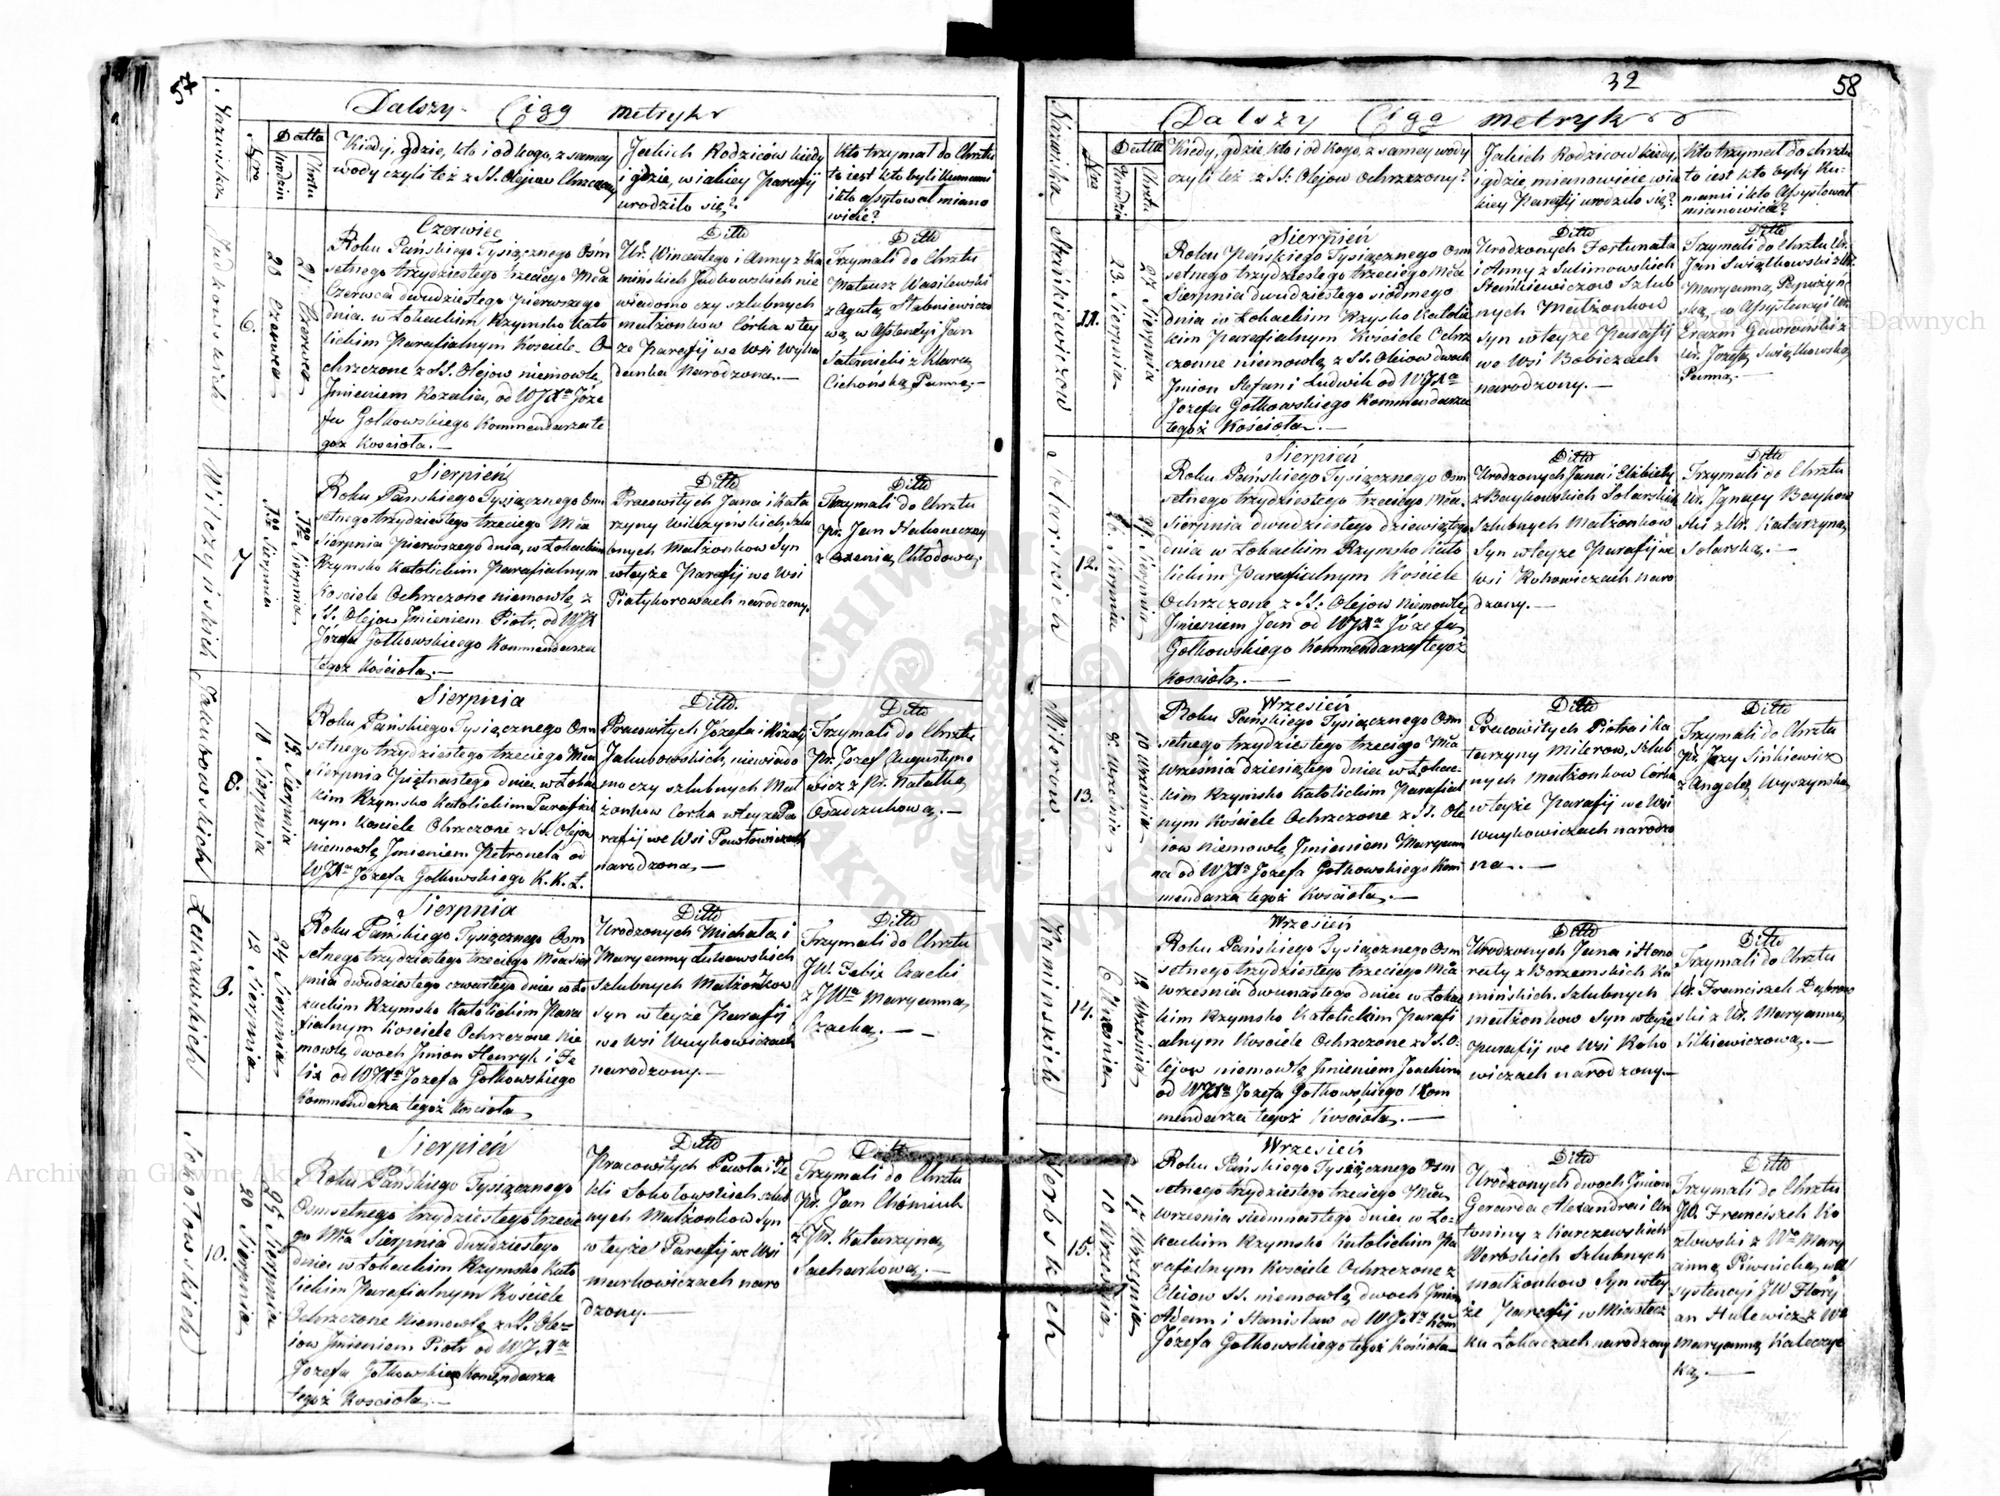 57
Dalszy Ciąg metryk
Nazwiska
Nro
Datta
Urodzin
Chrztu
Kiedy, gdzie, kto i od kogo, z samey
wody czyli też z SS. Olejow Chrzczony
Jakich Rodziców kiedy
i gdzie, w iakiey Parafij
urodziło się?
kto trzymał do Chrztu
to iest kto byli kumami
i kto assystował miano
wicie?
Judkowskich
6.
20 Czerwca
21. Czerwca
Czerwiec
Roku Pańskiego Tysiącznego Osm
setnego trzydziestego trzeciego Mca
Czerwca dwudziestego pierwszego
dnia w Łokackim Rzymsko kato
lickim Parafialnym Kościele O-
chrzczone z SS. Olejow niemowle,
Jmieniem Rozalia, od WJXa Józe
fa Gołkowskiego Kommendarza te
goż Kościoła.—
Ditto
Ur. Wincentego i Anny z Ka
mińskich Judkowskich nie
wiadomo czy szlubnych
małżonkow Córka w tey
że Parafij we Wsi
narodzona.—
Ditto
Trzymali do Chrztu
Mateusz Wasilewski
z Agatą
wą, w Assystencyi Jan
z Klarą
Cichońską Panną.—
Wilczyńskich
7
1go Sierpnia
Sierpień
Roku Pańskiego Tysiącznego Osm
setnego trzydziestego trzeciego Mca
Sierpnia pierwszego dnia, w Łokackim
Rzymsko Katolickim Parafialnym
Kościele Ochrzczone niemowle, z
SS. Olejow Jmieniem Piotr, od WJX
Józefa Gołkowskiego Kommendarza
tegoż Kościoła.—
Ditto
Pracowitych Jana i Kata
rzyny Wilczyńskich szlu
bnych Małżonkow Syn
w teyże Parafij we Wsi
narodzony.
Ditto
Trzymali do Chrztu
Pr. Jan
z Chłodową.
Jakubowskich
8.
10 Sierpnia
15. Sierpnia
Sierpnia
Roku Pańskiego Tysiącznego Osm
setnego trzydziestego trzeciego Mca
Sierpnia piętnastego dnia, w Łoka
kim Rzymsko Katolickim Parafial
nym Kościele Ochrzczone z SS. Olejow
niemowle Jmieniem Petronela od
WJXa Józefa Gołkowskiego K. K. Ł.
Ditto.
Pracowitych Józefa i Rozalij
Jakubowskich, niewiado
mo czy szlubnych Mał
żonkow Corka w teyże Pa
rafij we Wsi Pawłowiczach
narodzona.—
Ditto
Trzymali do Chrztu
Pr. Józef Augustyno
wicz z Pr. Natalką
Osadczukową.—
9.
12 Sierpnia
24 Sierpnia
Sierpnia
Roku Pańskiego Tysiącznego Osm
setnego trzydziestego trzeciego Mca Sier
pnia dwudziestego czwartego dnia w Ło
kackim Rzymsko Katolickim Para
fialnym Kościele Ochrzczone Nie
mowle, dwoch Jmion Henryk i Fe
lix od WJXa Jozefa Gołkowskiego
Kommendarza tegoż Kościoła
Ditto
Urodzonych Michała i
Maryanny
szlubnych Małżonkow
Syn w teyże Parafij
we Wsi Wuykowiczach
narodzony.—
Ditto
Trzymali do Chrztu
JW. Felix Czacki
z JWa Maryanną
Czacką.—
Sokołowskich
10.
20 Sierpnia
25 Sierpnia
Sierpień
Roku Pańskiego Tysiącznego
Osmsetnego trzydziestego trzecie
go Mca Sierpnia dwudziestego
dnia w Łokackim Rzymsko Kato
lickim Parafialnym Kościele
Ochrzczone Niemowle z SS. Ole
iow Jmieniem Piotr od WJXa
Jozefa Gołkowskiego Komendarza
tegoż Kościoła.—
Ditto
Pracowitych Pawła i Te
kli Sokołowskich szlub
nych Małżonkow Syn
w teyże Parafij we Wsi
Markowiczach naro
dzony.—
Ditto
Trzymali do Chrztu
Pr. Jan
z Pr. Katarzyną
Sacharkową.—
32
58
Dalszy Ciąg metryk
Nazwiska
Nro
Datta
Urodzin
Chrztu
Kiedy, gdzie, kto i od kogo, z samey wody
czyli też z SS: Olejow ochrzczony?
Jakich Rodzicow kiedy
i gdzie, mianowicie w ia
kiey Parafij urodziło się?
Kto trzymał do chrztu
to iest kto byli Ku-
mami i kto Assystował
mianowicie?
Stańkiewiczow
11.
23. Sierpnia
27 Sierpnia
Sierpień
Roku Pańskiego Tysiącznego Osm
setnego trzydziestego trzeciego Mca
Sierpnia dwudziestego siódmego
dnia w Łokackim Rzymsko Katolic
kim Parafialnym Kościele Ochrz
czone niemowle, z SS. Oleiow dwoch
Jmion Stefan i Ludwik od WJXa
Jozefa Gołkowskiego Kommendarza
tegoż Kościoła.—
Ditto
Urodzonych Fortunata
i Anny z Sulimowskich
Stańkiewiczow Szlub
nych Małżonkow
Syn w teyże Parafij
we Wsi Bobiczach
narodzony.—
Ditto
Trzymali do Chrztu Ur.
Jan Swiątkowski z Ur.
Maryanną
w Assystencyi Ur.
Erazm Gaworowski z
Ur. Jozefą Swiątkowską
Panną.—
Solarskich
12.
29. Sierpnia
Sierpień
Roku Pańskiego Tysiącznego Osm
setnego trzydziestego trzeciego Mca.
Sierpnia dwudziestego dziewiątego
dnia w Łokackim Rzymsko Kato
lickim Parafialnym Kościele
Ochrzczone z SS: Olejow Niemowle,
Jmieniem Jan od WJXa Józefa
Gołkowskiego Kommendarza tegoż
Kościoła.—
Ditto
Urodzonych Jana i Elżbiety
z Baykowskich Solarskich
Szlubnych Małżonkow
Syn w teyże Parafij we
Wsi Kohowiczach naro
dzony.—
Ditto
Trzymali do Chrztu
Ur. Jgnacy Baykow
ski z Ur. Katarzyną
Solarską.—
Milerow.
13.
8 Września
10 Września
Wrzesień
Roku Pańskiego Tysiącznego Osm
setnego trzydziestego trzeciego Mca
Września dziesiątego dnia w Łokac-
kim Rzymsko Katolickim Parafial
nym Kościele Ochrzczone z SS. Ole
iow Niemowle, Jmieniem Maryan
na od WJXa Jozefa Gołkowskiego Kom
mendarza tegoż Kościoła.—
Ditto
Pracowitych Piotra i Ka
tarzyny Milerow, szlub
nych małżonkow Córka
w teyże Parafij we Wsi
Wuykowiczach narodzo
na.—
Ditto
Trzymali do Chrztu
Pr. Jzy Sińkiewicz
z Angelą Wyszyńską
Kamińskich
14.
6 Września
12 Września
Wrzesień
Roku Pańskiego Tysiącznego Osm
setnego trzydziestego trzeciego Mca
Września dwunastego dnia w Łokac
kim Rzymsko Katolickim Parafi
alnym Kościele Ochrzczone z SS. O
lejow niemowle Jmieniem Joachim
od WJXa Jozefa Gołkowskiego Kom
mendarza tegoż Kościoła.—
Ditto
Urodzonych Jana i Hono
raty z Borzemskich Ka
mińskich. Szlubnych
małżonkow Syn w teyże
parafij we Wsi Koho
wiczach narodzony.—
Ditto
Trzymali do Chrztu
Ur. Franciszek Dąbrow
ski z Ur. Maryanną
Witkiewiczową.—
Werbskich
15.
10 Września
17 Września
Wrzesień
Roku Pańskiego Tysiącznego Osm
setnego trzydziestego trzeciego Mca
Września siedmnastego dnia w Ło-
kackim Rzymsko Katolickim Pa
rafialnym Kościele Ochrzczone z
Oleiow SS. niemowle, dwoch Jmion
Adam i Stanisław od WJXa Kom
Józefa Gołkowskiego tegoż Kościoła
Ditto
Urodzonych dwoch Jmion
Gerarda Alexandra i An
toniny z Karczewskich
Werbskich Szlubnych
małżonkow Syn w tey
że Parafij w Miastecz
ku Łokaczach narodzony
Ditto
Trzymali do Chrztu
JW. Franciszek Ko
złowski z Wną Mary
anną Piwnicką, w As
systencyi JW Flory
an Hulewicz z Wą
Maryanną Kaleczyc
ką.—
ARCHIWUM GŁÓWNE AKT DAWNYCH
Archiwum Główne Akt Dawnych
Archiwum Główne Akt Dawnych